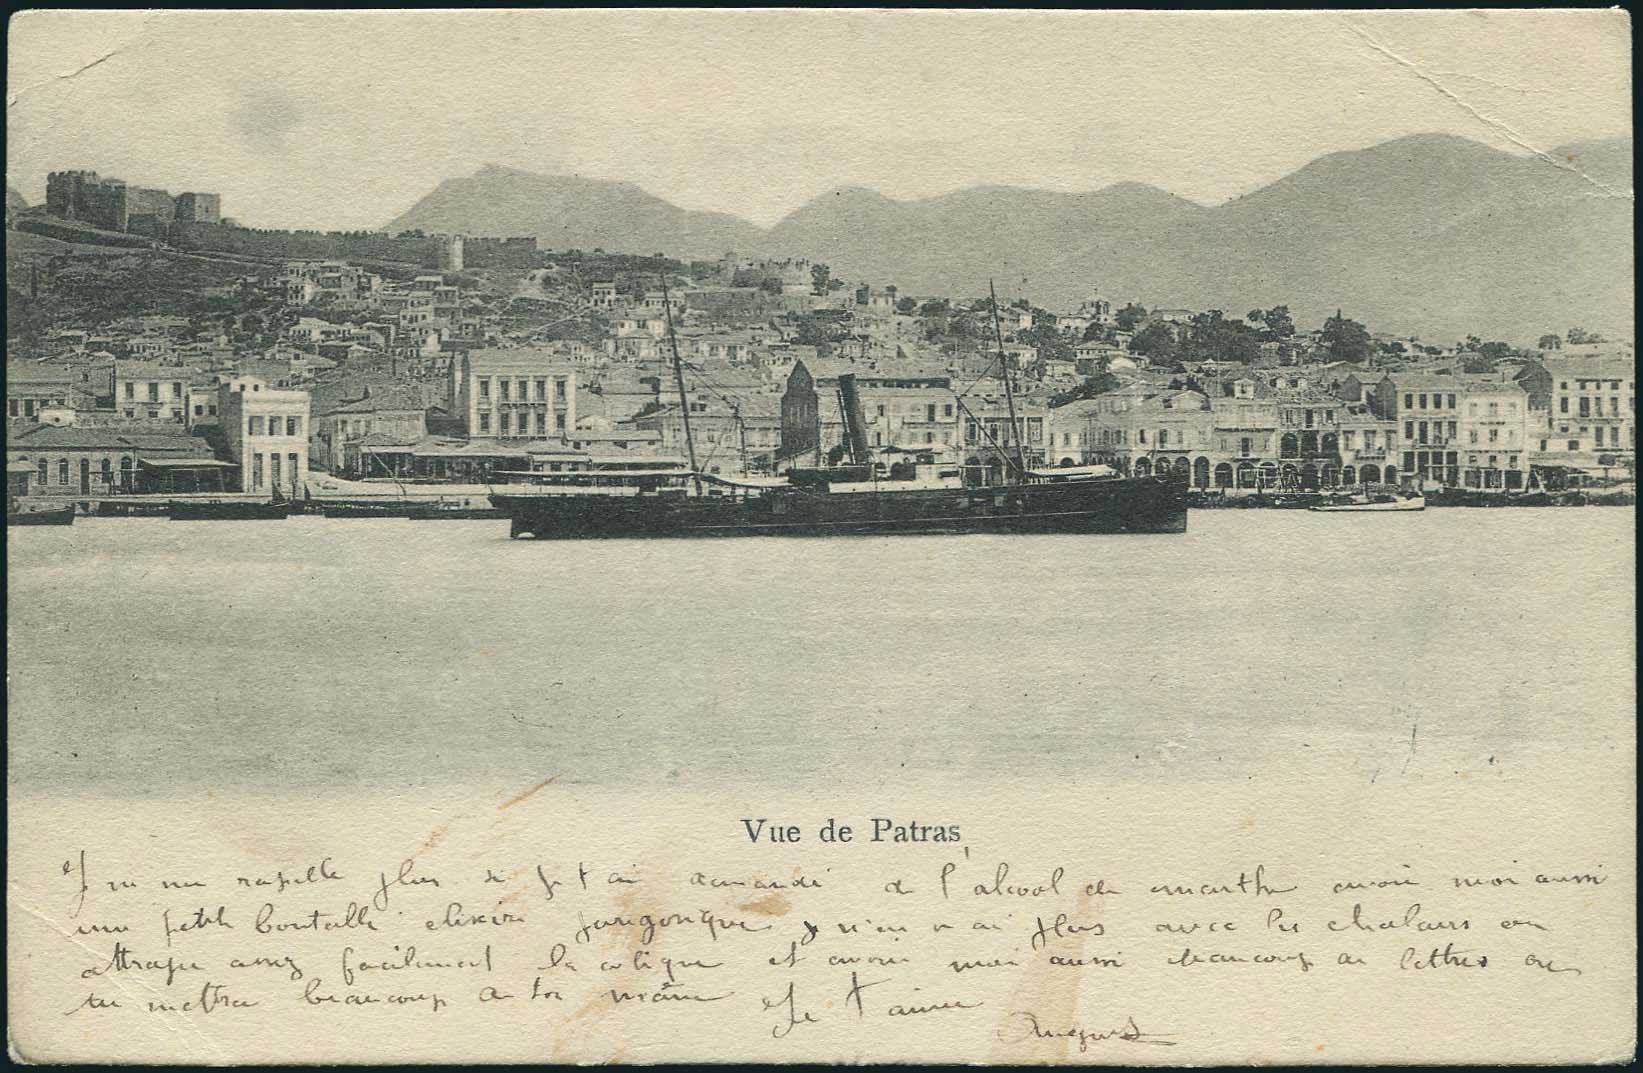 Vue de Patras
Je me rapelle plus si je t ai demandé de l'alcool de menthe avoie moi aussi
une petite bouteille elixire j n'en n ai plus avec les chaleurs on
attrape assez facilement la colique et avoie moi aussi beaucoup de lettres ou
tu mettra beaucoup de toi même Je t aime
August